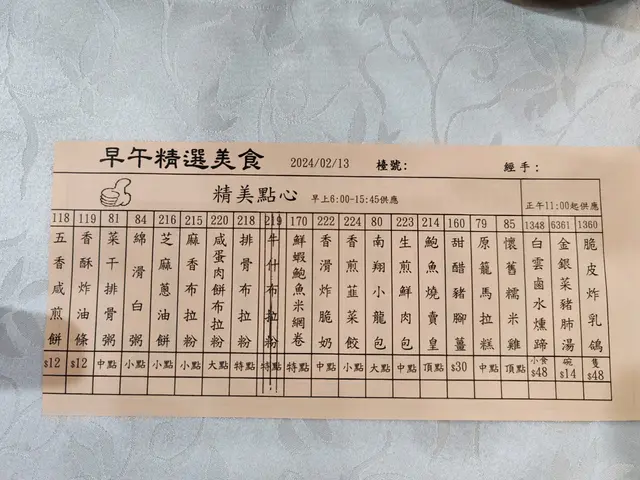 早午精選美食 2024/02/13 檯號： 經手：
精美點心 早上6:00-15:45供應
正午11:00起供應
118 五香咸煎餅 $12
119 香酥炸油條 $12
81 菜干排骨粥 中點
84 綿滑白粥 小點
216 芝麻蔥油餅 小點
215 麻香布拉粉 小點
220 咸蛋肉餅布拉粉 大點
218 排骨布拉粉 特點
219 牛什布拉粉 特點
170 鮮蝦鮑魚米網卷 特點
222 香滑炸脆奶 中點
224 香煎韮菜餃 小點
80 南翔小龍包 大點
223 生煎鮮肉包 中點
214 鮑魚燒賣皇 頂點
160 甜醋豬腳薑 $30
79 原籠馬拉糕 中點
85 懷舊糯米雞 頂點
1348 白雲鹵水燻蹄 小食 $48
6361 金銀菜豬肺湯 碗 $14
1360 脆皮炸乳鴿 隻 $48